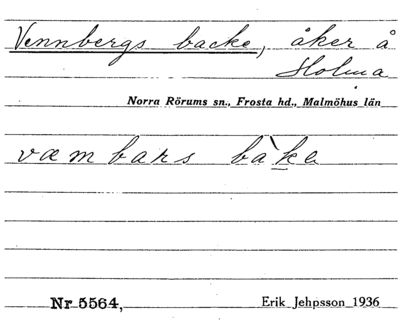 Vennbergs backe, åker å
Holma
Norra Rörums sn., Frosta hd., Malmöhus län
væmbars bàke
Nr 5564,
Erik Jehpsson 1936